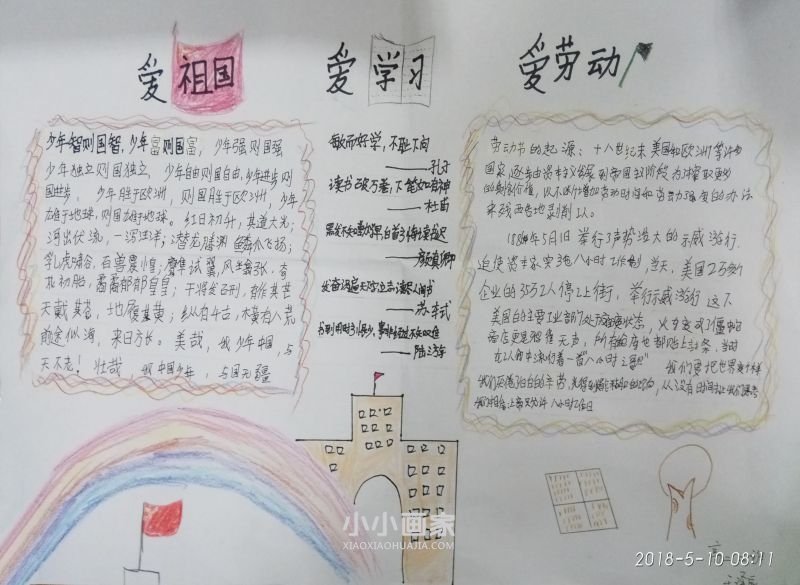 爱祖国
少年智则国智，少年富则国富，少年强则国强
少年独立则国独立，少年自由则国自由，少年进步则
国进步，少年胜于欧洲，则国胜于欧洲，少年
雄于地球，则国雄于地球。红日初升，其道大光；
河出伏流，一泻汪洋；潜龙腾渊，鳞爪飞扬；
乳虎啸谷，百兽震惶；鹰隼试翼，风尘翕张，奇
花初胎，矞矞皇皇；干将发硎，有作其芒
天戴其苍，地履其黄；纵有千古，横有八荒
前途似海，来日方长。美哉，我少年中国，与
天不老！壮哉，我中国少年，与国无疆
爱学习
敏而好学，不耻下问
——孔子
读书破万卷，下笔如有神
——杜甫
黑发不知勤学早，白首方悔读书迟
——颜真卿
发奋识遍天下字，立志读尽人间书
——苏轼
爱劳动
劳动节的起源：十八世纪末，美国和欧洲的许多
国家，逐步由资本主义发展到帝国主义阶段，为榨取更多
的剩余价值，以不断增加劳动时间和劳动强度的办法
来残酷地剥削工人。
1886年5月1日 举行了声势浩大的示威游行，
迫使资本家实施八小时工作制，当天，美国2万多个
企业的35万工人停工上街，举行示威游行
美国的主要工业部门处于瘫痪状态，火车变成了僵蛇
商店更是鸦雀无声，所有的仓库也都贴上封条，当时
八小时之歌
我们要把世界变个样
小小画家
XIAOXIAOHUAJIA.COM
2018-5-10-08:11